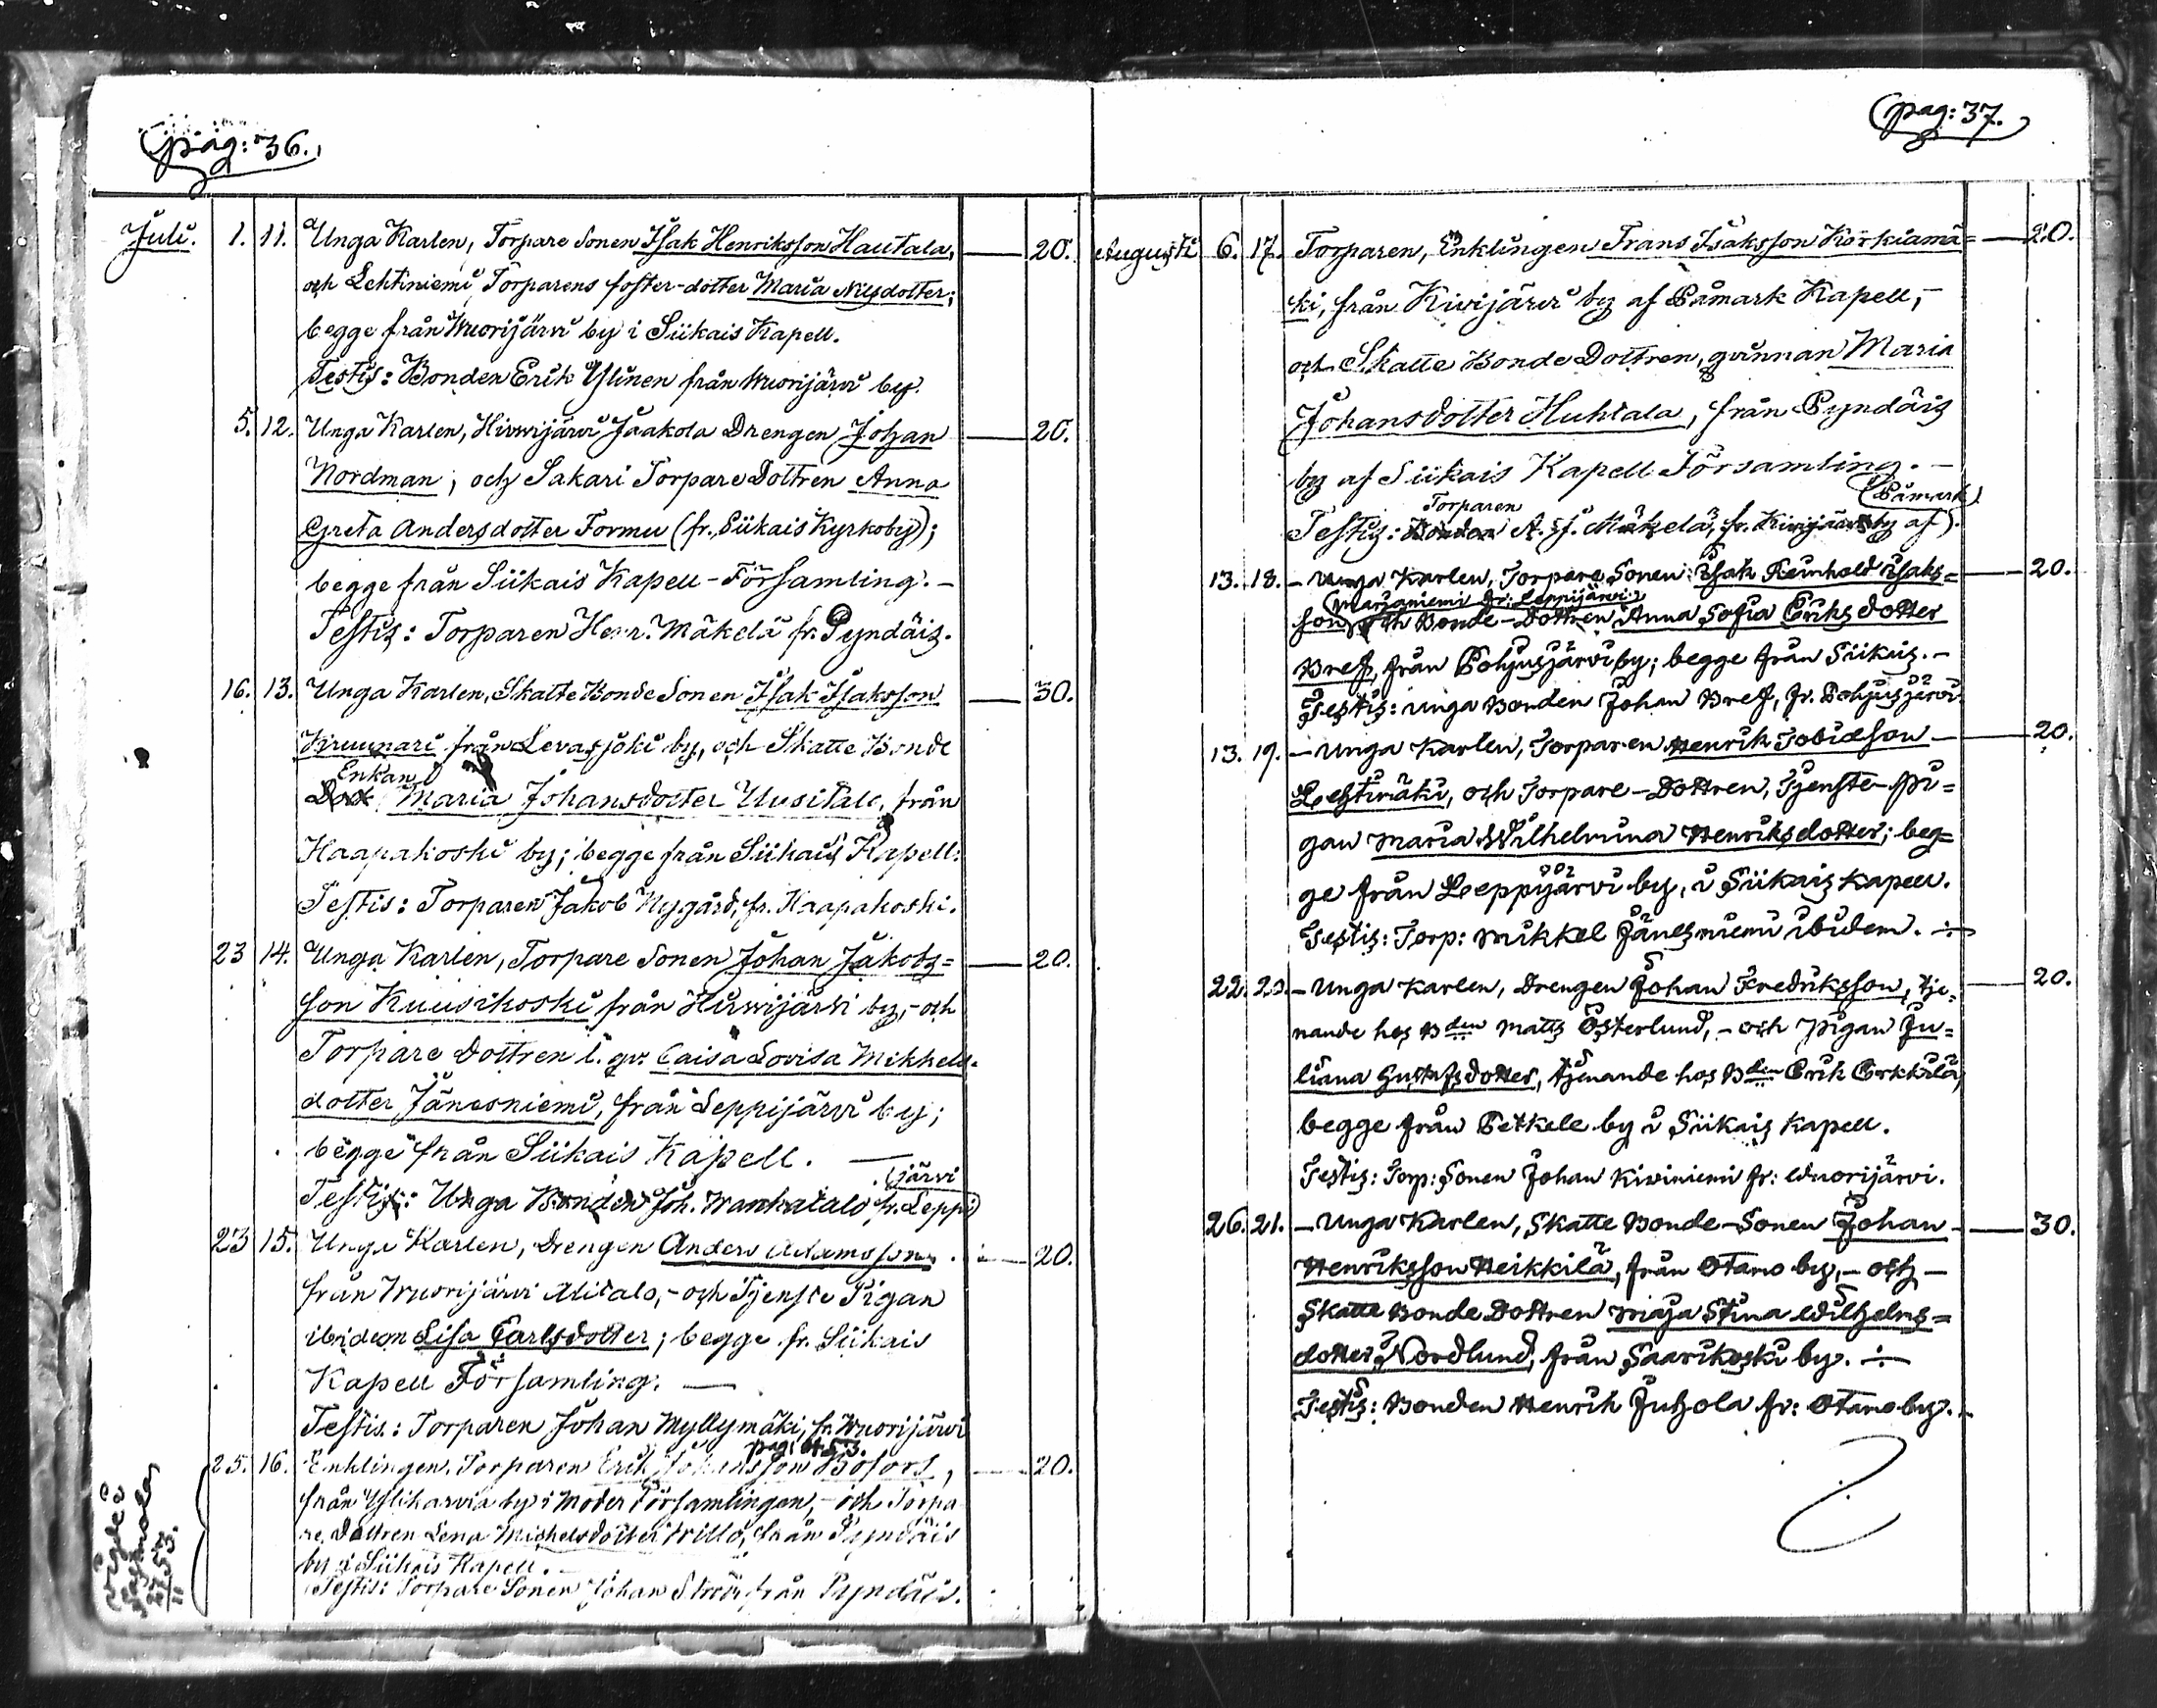 pag: 36.
Juli. 1. 11. Unga Karlen, Torpare Sonen Isak Henriksson Hautala, — 20.
och Lehtiniemi Torparens foster-dotter Maria Nilsdotter;
begge från Wuorijärvi by i Siikais Kapell.
Testis: Bonden Erik Ylinen från Wuorijärvi by.
5. 12. Unga Karlen, Hirwijärvi Jaakola Drengen Johan — 20.
Nordman; och Sakari Torpare Dottren Anna
Greta Andersdotter Formu (fr. Siikais Kyrkoby);
begge från Siikais Kapell-Församling. —
Testis: Torparen Henr. Mäkelä fr. Pyndäis.
16. 13. Unga Karlen, Skatte Bonde Sonen Isak Isaksson — 30.
Kruunari från Levasjoki by, och Skatte Bonde
Enkan
Maria Johansdotter Uusitalo, från
Haapakoski by; begge från Siikais Kapell:
Testis: Torparen Jakob Nygård, fr. Haapakoski.
23 14. Unga Karlen, Torpare Sonen Johan Jakobs= — 20.
son Kuusikoski från Hirwijärvi by, - och
Torpare Dottren l. qv: Caisa Lovisa Mikkels-
dotter Jänesniemi, från Leppijärvi by;
begge från Siikais Kapell. —
(järvi
Testis: Unga Bonden Joh. Wanhatalo fr. Leppi)
23 15. Unga Karlen, Drengen Anders Adamsson — 20.
från Wuorijärvi Alitalo, - och Tjenste Pigan
ibidem Lisa Carlsdotter; begge fr. Siikais
Kapell Församling. —
Testis: Torparen Johan Myllymäki, fr. Wuorijärvi
pag: 453.
25. 16. Enklingen, Torparen Erik Johansson Bofors, — 20.
från Ylikarvia by i Moder Församlingen, - och Torpa
re Dottren Lena Michelsdotter Willo, från Pyndäis
by i Siikais Kapell. —
Testis: Torpare Sonen Johan Ström från Pyndäis.
pag: 37.
Augusti 6. 17. Torparen, Enklingen Frans Isaksson Korkiamä= — 20.
ki, från Kivijärvi by af Påmark Kapell, -
och Skatte Bonde Dottren, qvinnan Maria
Johansdotter Huhtala, från Pyndäis
by af Siikais Kapell Församling. —
Torparen (Påmark)
Testis: Bonden A. J. Mäkelä, fr. Kivijärvi by af).
13. 18. - Unga Karlen, Torpare Sonen Isak Reinhold Isaks= — 20.
(Marjaniemi fr: Leppijärvi)
son, och Bonde-Dottren Anna Sofia Eriksdotter
Bref, från Pohjusjärvi by; begge från Siikais. —
Testis: unga Bonden Johan Bref, fr. Pohjusjärvi.
13. 19. - Unga Karlen, Torparen Henrik Tobiasson — 20.
Lehtimäki, och Torpare-Dottren, Tjenste-Pi=
gan Maria Wilhelmina Henriksdotter; beg=
ge från Leppijärvi by, i Siikais Kapell.
Testis: Torp: Mikkel Jänesniemi ibidem. ÷
22. 20. - Unga Karlen, Drengen Johan Fredriksson, tje= — 20.
nande hos Bden Matts Österlund, - och Pigan Ju=
liana Gustafsdotter, tjenande hos Bden Erik Erkkilä,
begge från Petkele by i Siikais Kapell.
Testis: Torp: Sonen Johan Kiviniemi fr: Wuorijärvi.
26. 21. - Unga Karlen, Skatte Bonde-Sonen Johan — 30.
Henriksson Heikkilä, från Otamo by, - och -
Skatte Bonde Dottren Maja Stina Wilhelms=
dotter Nordlund, från Saarikoski by. ÷
Testis: Bonden Henrik Juhola fr: Otamo by.